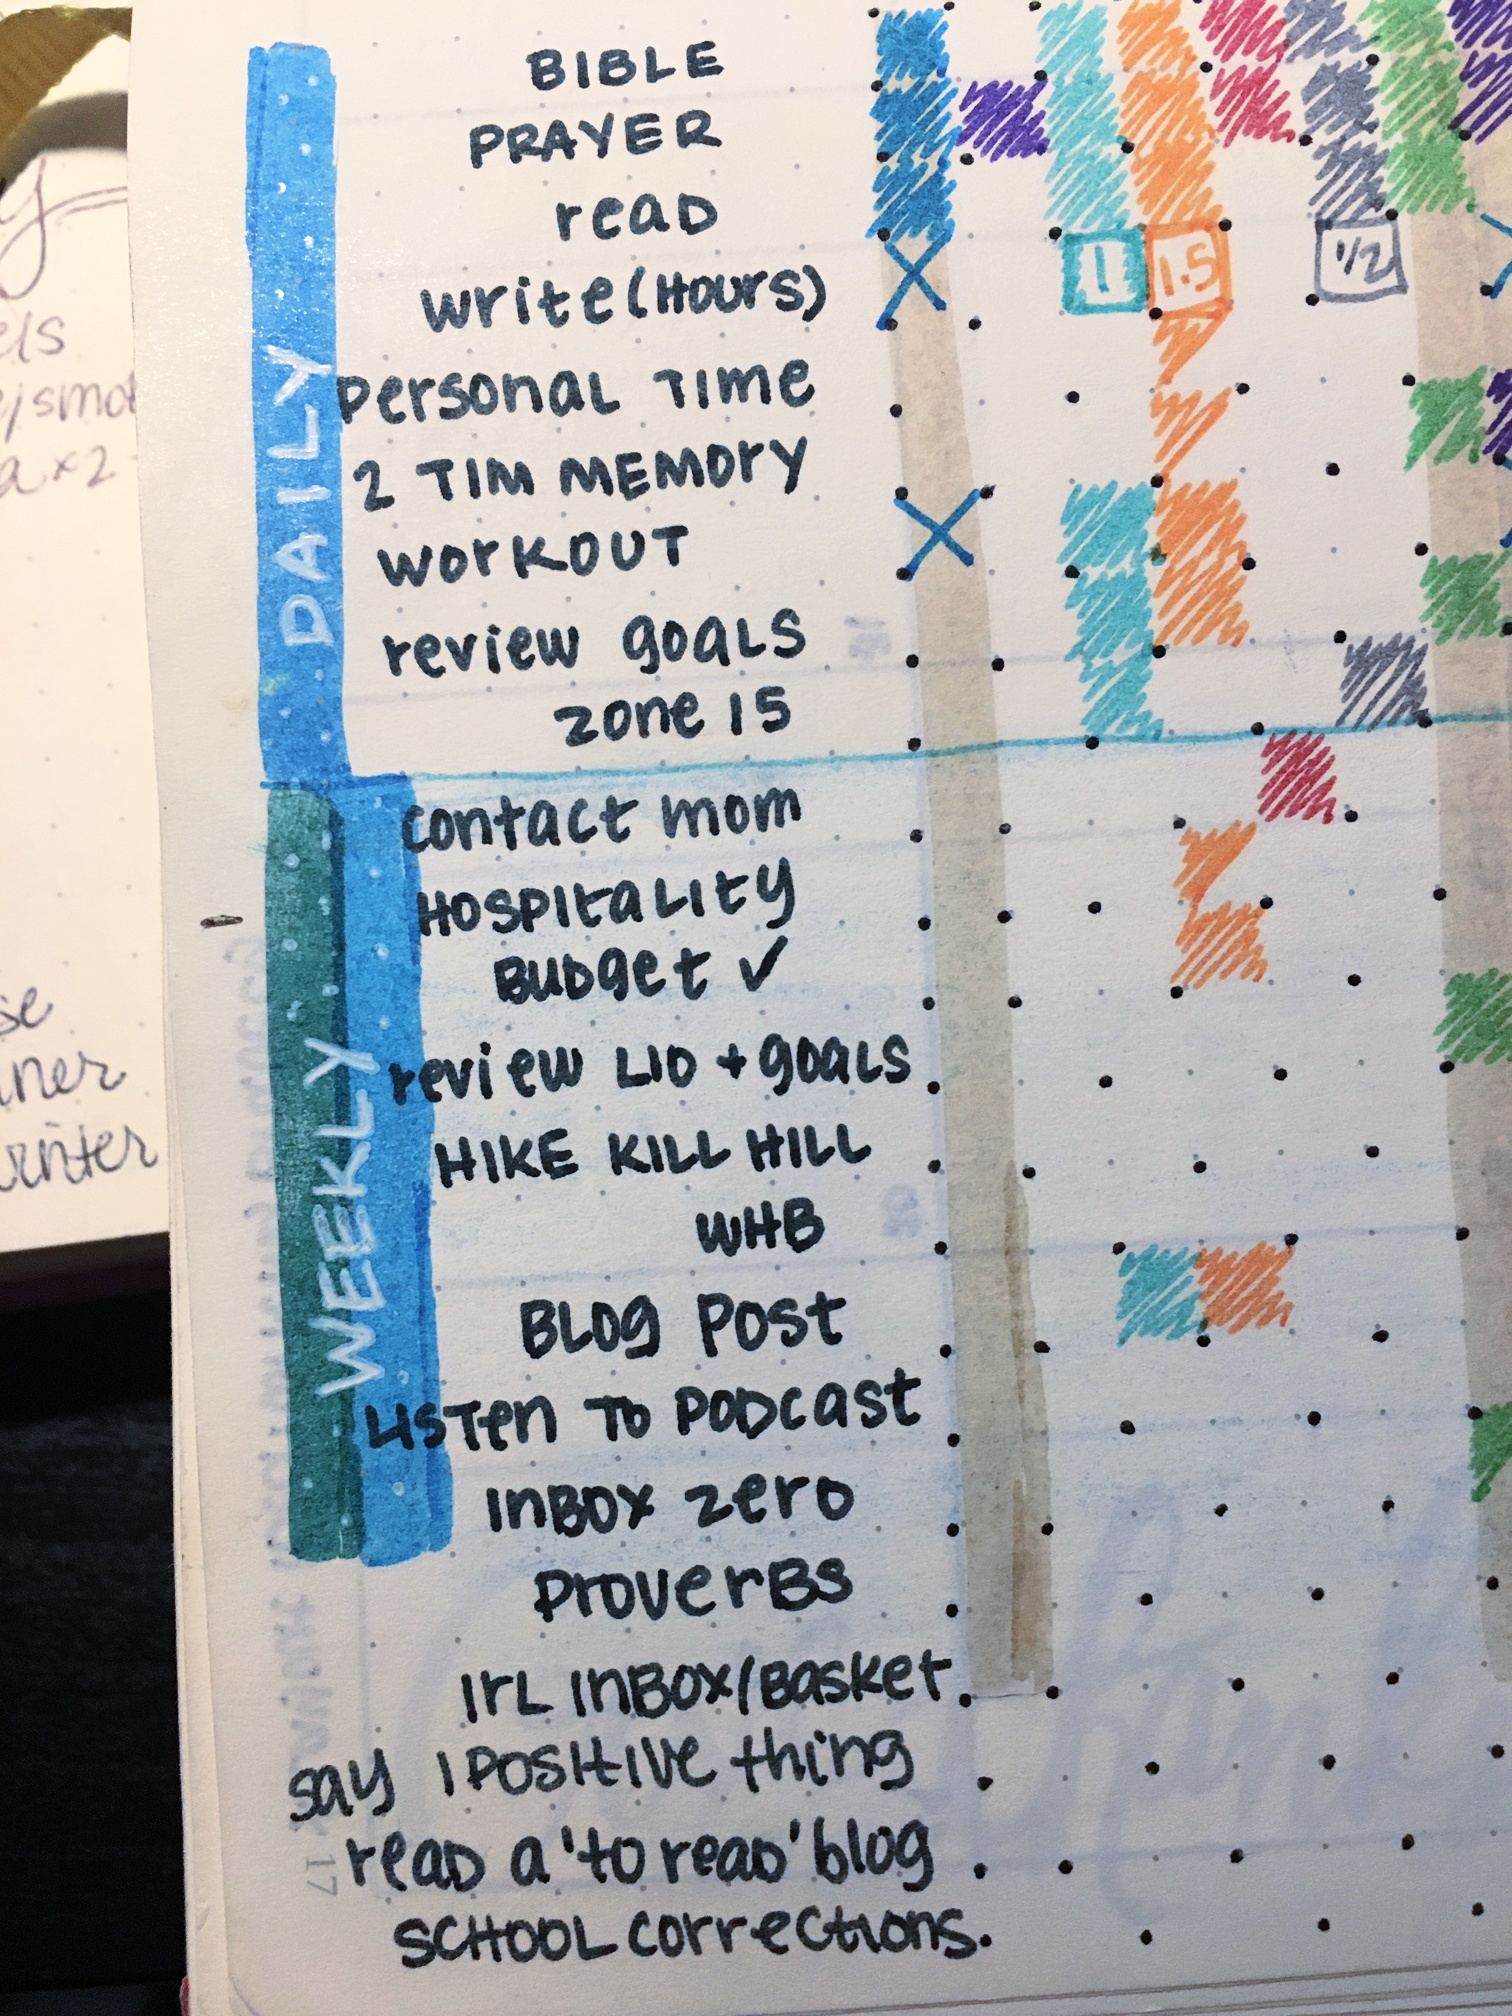 DAILY
BIBLE
PRAYER
read
write (Hours)
1
1.5
1/2
personal Time
2 TIM MEMory
workOUT
review goals
zone 15
WEEKLY
contact mom
HospitaLity
Budget ✓
review LID + goals
HIKE KILL HILL
WHB
BLog Post
Listen To Podcast
InBox zero
ProverBs
IrL InBox/Basket
say 1 Positive thing
read a 'to read' blog
SCHOOL corrections.
17
els
ax2
se